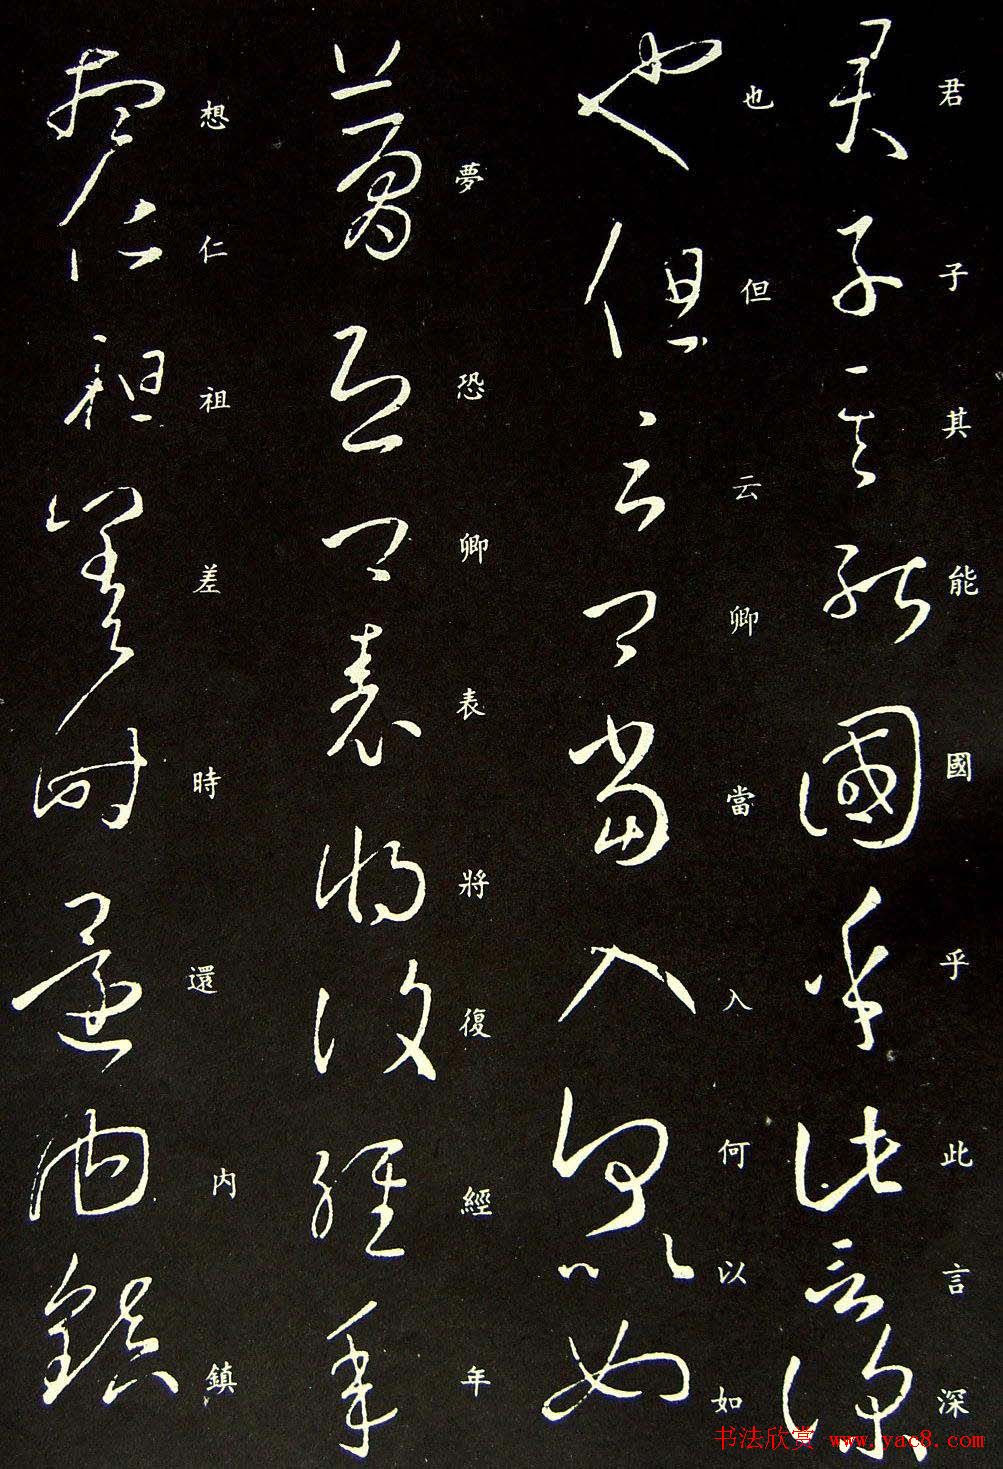 君子其能國乎此言深
也但云卿當入何以如
夢恐卿表將復經年
想仁祖差時還內鎮
书法欣赏 www.yac8.com